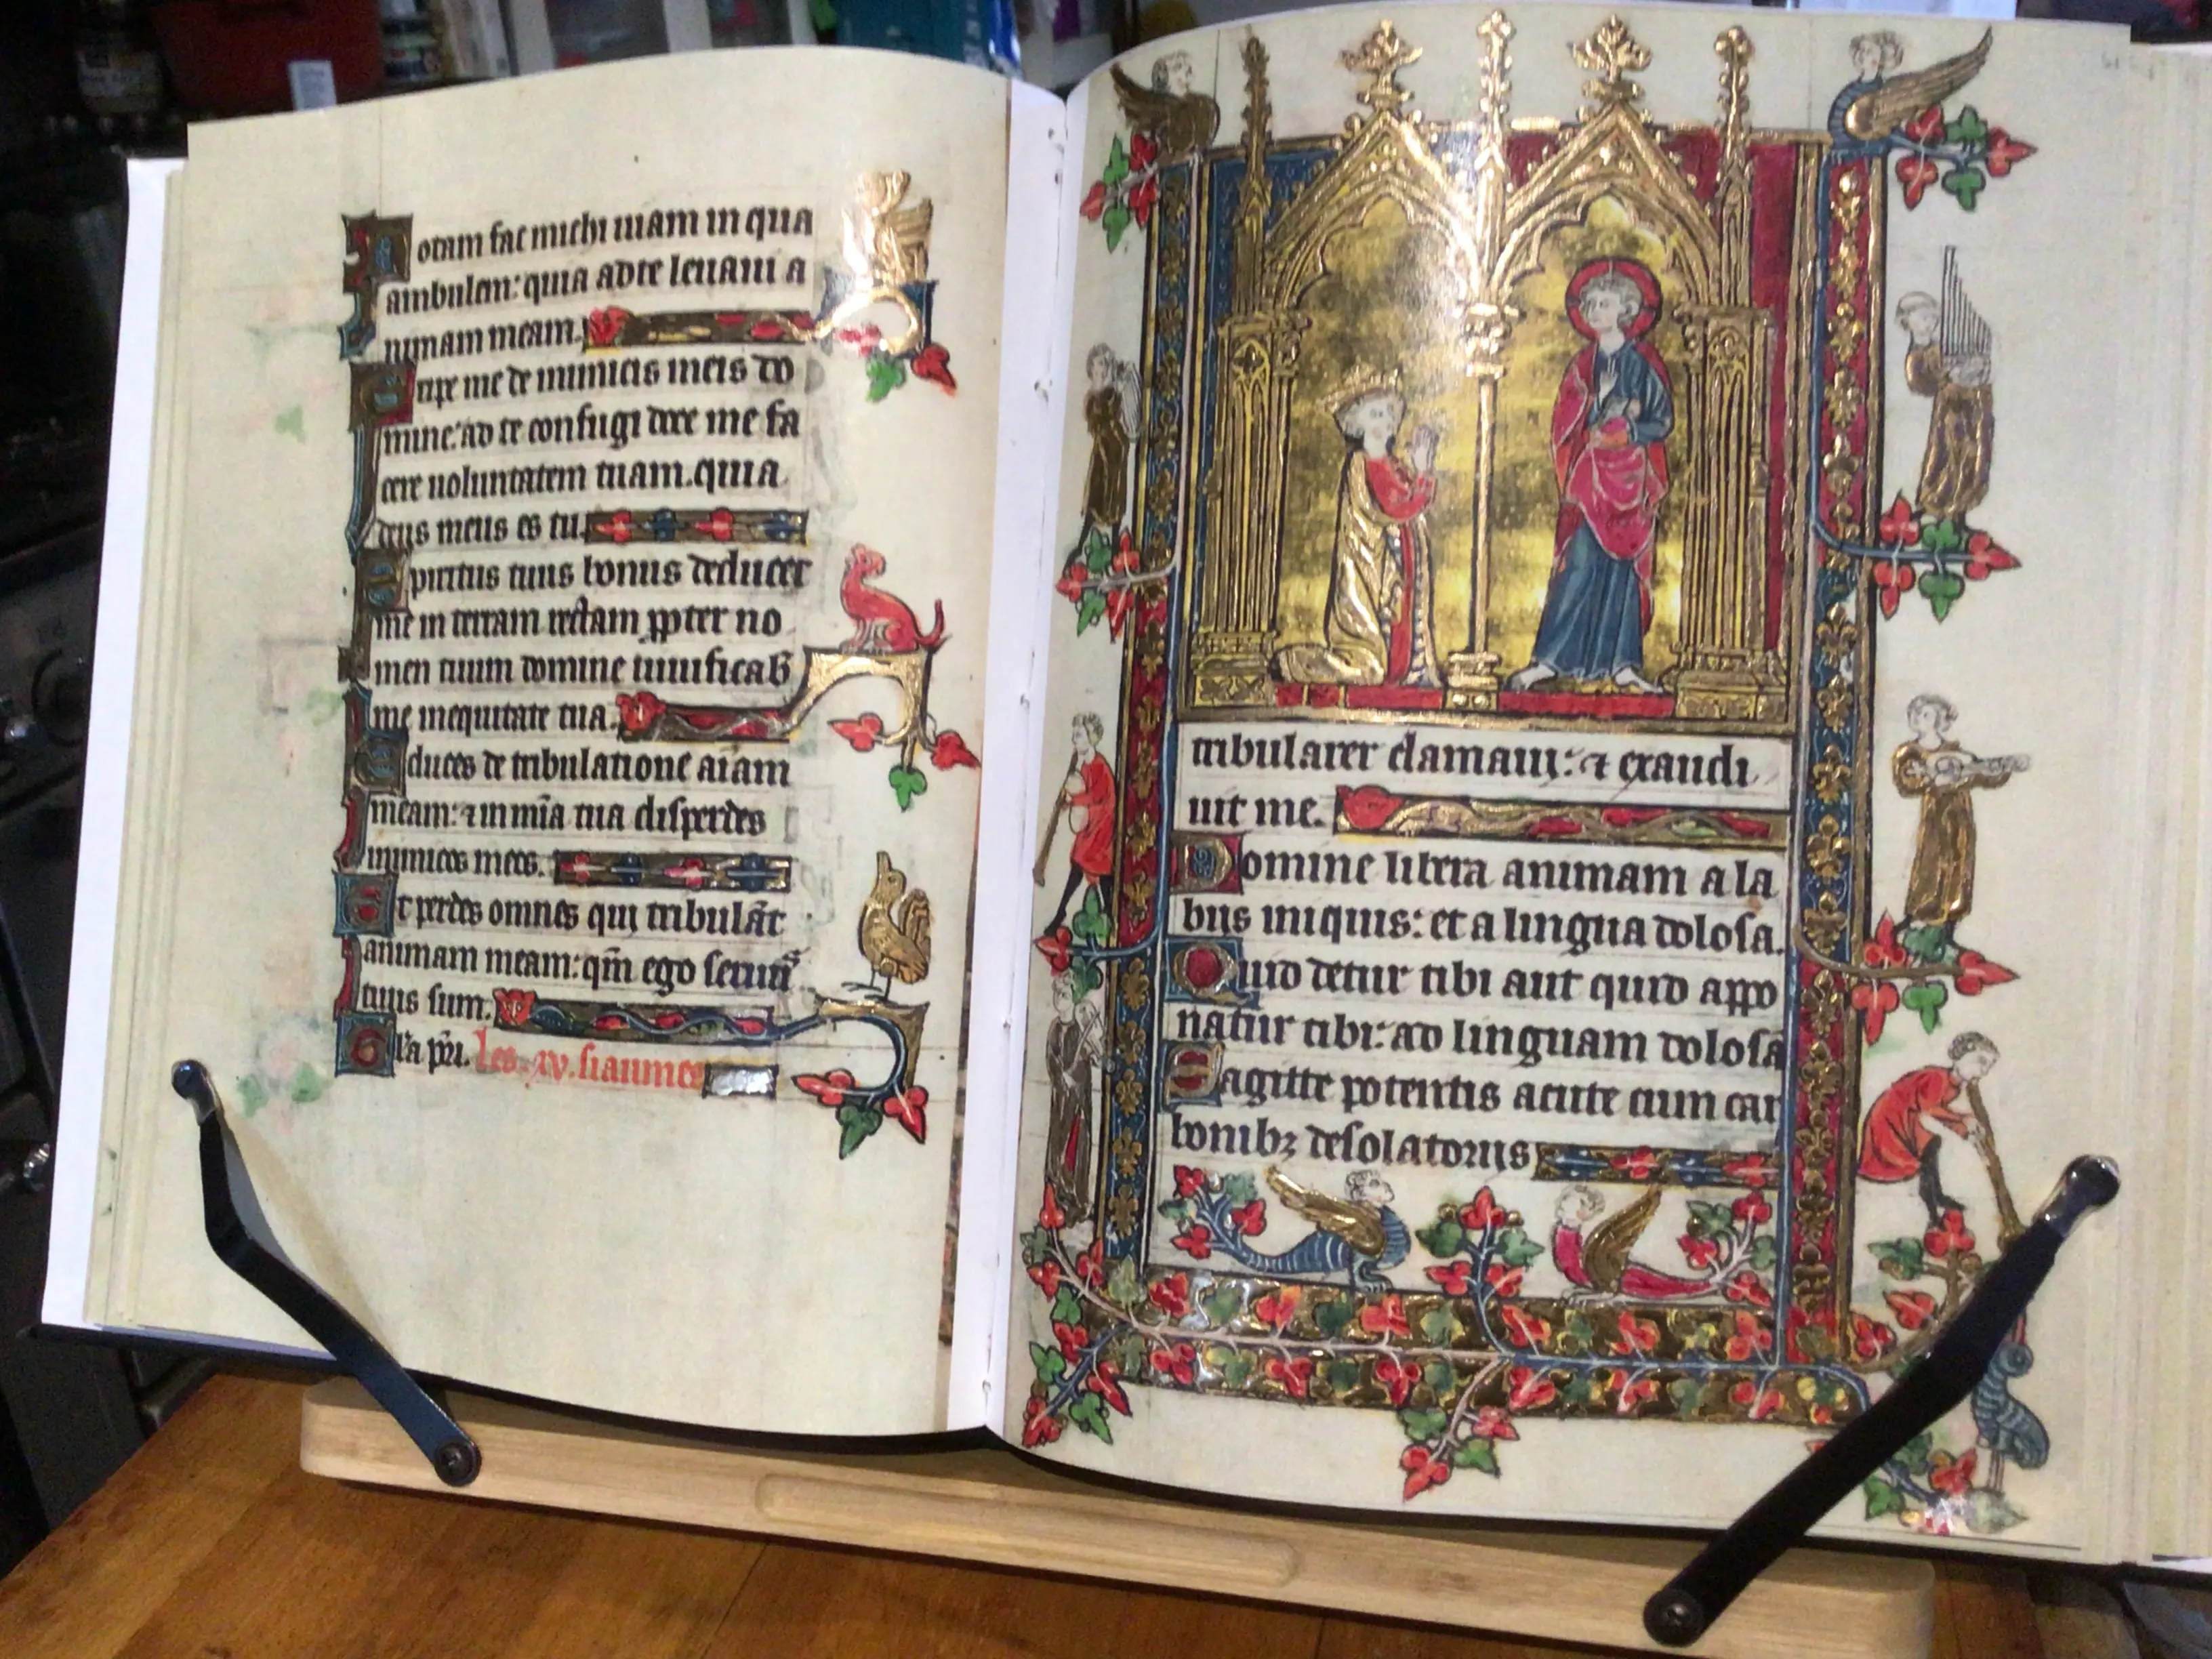 Notam fac michi uiam in qua
ambulem: quia ad te leuaui a
nimam meam.
Eripe me de inimicis meis do
mine: ad te confugi doce me fa
cere uoluntatem tuam. quia
deus meus es tu.
Spiritus tuus bonus deducet
me in terram rectam ꝓpter no
men tuum domine uiuificab
me in equitate tua.
Educes de tribulatione aīam
meam: ⁊ in mīa tua disperdes
inimicos meos.
Et perdes omnes qui tribulāt
animam meam: qm̄ ego seruus
tuus sum.
Gl'a pr̄i. les .xv. siaumes
tribularer clamaui: ⁊ exaudi
uit me.
Domine libera animam a la
biis iniquis: et a lingua dolosa.
Quid detur tibi aut quid appo
natur tibi: ad linguam dolosā
Sagitte potentis acute cum car
bonibꝫ desolatoriis